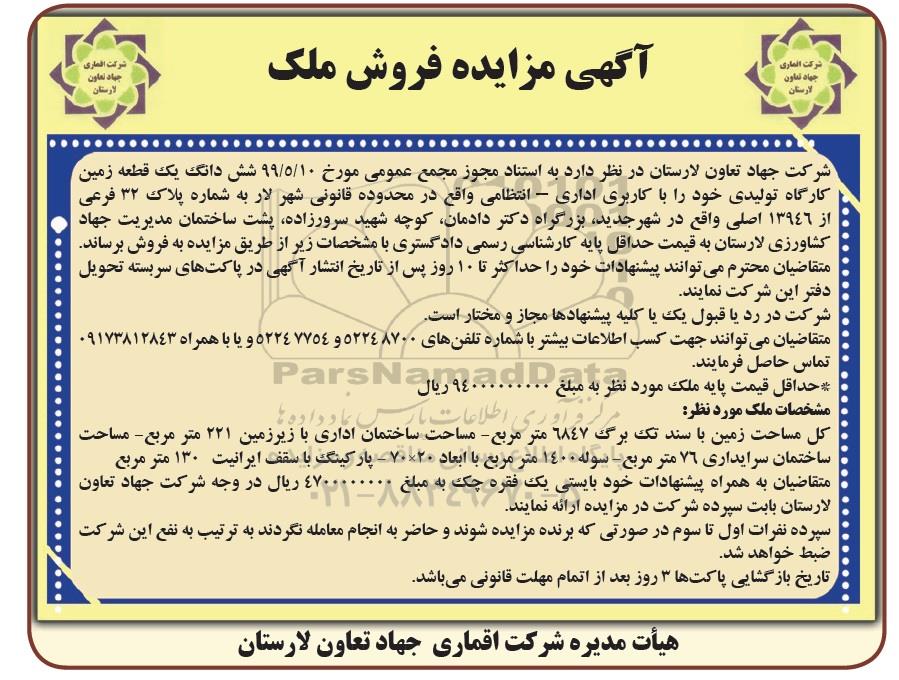 آگهی مزایده فروش ملک
شرکت اقماری
جهاد تعاون
لارستان
شرکت اقماری
جهاد تعاون
لارستان
شرکت جهاد تعاون لارستان در نظر دارد به استناد مجوز مجمع عمومی مورخ ۹۹/۵/۱۰ شش دانگ یک قطعه زمین
کارگاه تولیدی خود را با کاربری اداری – انتظامی واقع در محدوده قانونی شهر لار به شماره پلاک ۳۲ فرعی
از ۱۳۹٤٦ اصلی واقع در شهرجدید، بزرگراه دکتر دادمان، کوچه شهید سرورزاده، پشت ساختمان مدیریت جهاد
کشاورزی لارستان به قیمت حداقل پایه کارشناسی رسمی دادگستری با مشخصات زیر از طریق مزایده به فروش برساند.
متقاضیان محترم می‌توانند پیشنهادات خود را حداکثر تا ۱۰ روز پس از تاریخ انتشار آگهی در پاکت‌های سربسته تحویل
دفتر این شرکت نمایند.
شرکت در رد یا قبول یک یا کلیه پیشنهادها مجاز و مختار است.
متقاضیان می‌توانند جهت کسب اطلاعات بیشتر با شماره تلفن‌های ۵۲۲٤۸۷۰۰ و ۵۲۲٤۷۷۵٤ و یا با همراه ۰۹۱۷۳۸۱۲۸٤۳
تماس حاصل فرمایند.
*حداقل قیمت پایه ملک مورد نظر به مبلغ ۹٤۰۰۰۰۰۰۰۰۰ ریال
مشخصات ملک مورد نظر:
کل مساحت زمین با سند تک برگ ٦۸٤۷ متر مربع- مساحت ساختمان اداری با زیرزمین ۲۲۱ متر مربع- مساحت
ساختمان سرایداری ۷٦ متر مربع- سوله ۱٤۰۰ متر مربع با ابعاد ۲۰×۷۰ - پارکینگ با سقف ایرانیت ۱۳۰ متر مربع
متقاضیان به همراه پیشنهادات خود بایستی یک فقره چک به مبلغ ٤۷۰۰۰۰۰۰۰۰ ریال در وجه شرکت جهاد تعاون
لارستان بابت سپرده شرکت در مزایده ارائه نمایند.
سپرده نفرات اول تا سوم در صورتی که برنده مزایده شوند و حاضر به انجام معامله نگردند به ترتیب به نفع این شرکت
ضبط خواهد شد.
تاریخ بازگشایی پاکت‌ها ۳ روز بعد از اتمام مهلت قانونی می‌باشد.
ParsNamadData
مرکز فرآوری اطلاعات پارس نماد داده ها
۰۲۱-۸۸۳٤۹٦۷۰-۵
هیأت مدیره شرکت اقماری جهاد تعاون لارستان